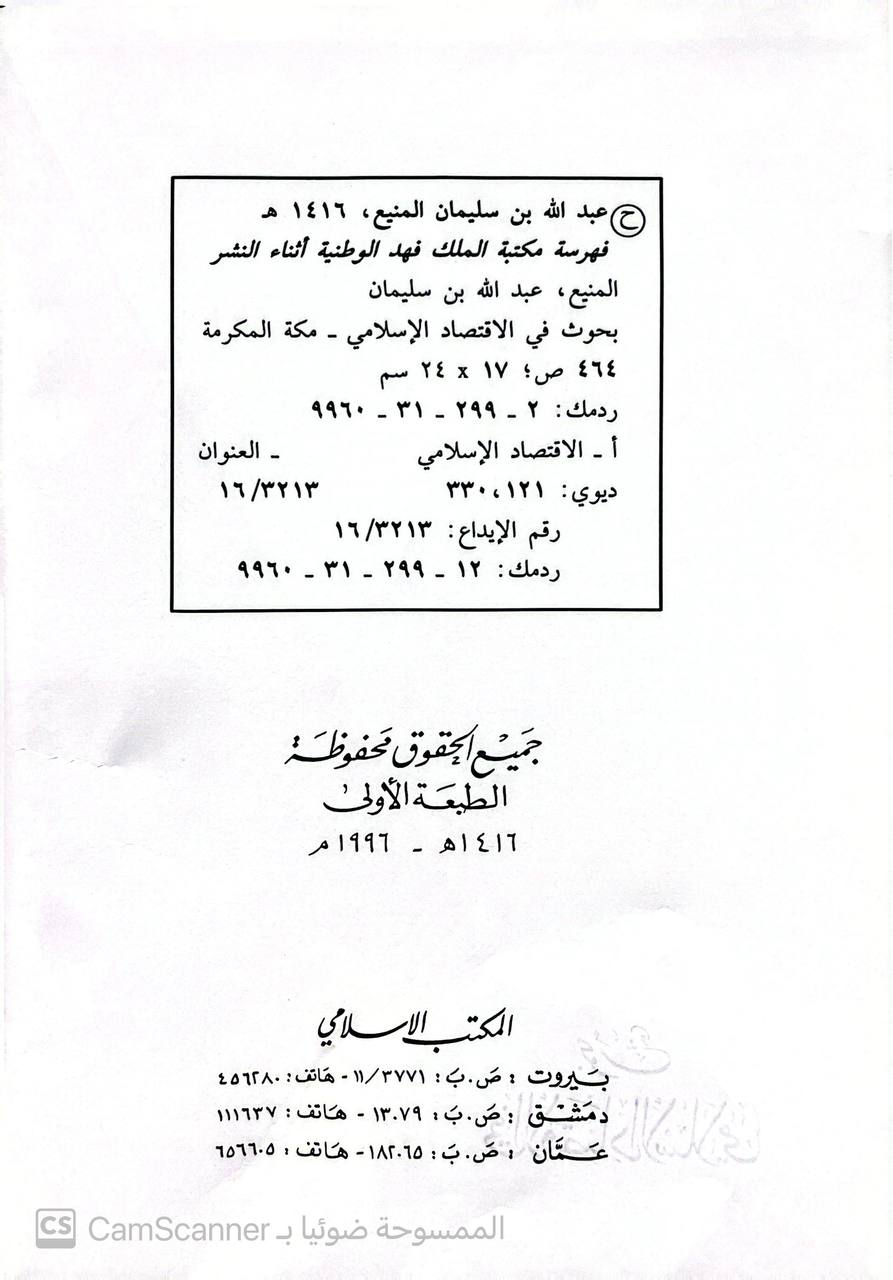 ح عبد الله بن سليمان المنيع، ١٤١٦ هـ
فهرسة مكتبة الملك فهد الوطنية أثناء النشر
المنيع، عبد الله بن سليمان
بحوث في الاقتصاد الإسلامي ـ مكة المكرمة
٤٦٤ ص؛ ١٧ x ٢٤ سم
ردمك: ٢ ـ ٢٩٩ ـ ٣١ ـ ٩٩٦٠
أ ـ الاقتصاد الإسلامي ـ العنوان
ديوي: ٣٣٠،١٢١ ١٦/٣٢١٣
رقم الإيداع: ١٦/٣٢١٣
ردمك: ١٢ ـ ٢٩٩ ـ ٣١ ـ ٩٩٦٠
جَمِيْع الحقوق مَحفوظَة
الطبعَة الأولىٰ
١٤١٦هـ ـ ١٩٩٦م
المكتب الاسلامي
بَيروت : صَ.بَ: ١١/٣٧٧١ - هَاتف: ٤٥٦٢٨٠
دمَشق : صَ.بَ: ١٣٠٧٩ - هَاتف: ١١١٦٣٧
عَمَّان : صَ.بَ: ١٨٢٠٦٥ - هَاتف: ٦٥٦٦٠٥
CS CamScanner الممسوحة ضوئيا بـ